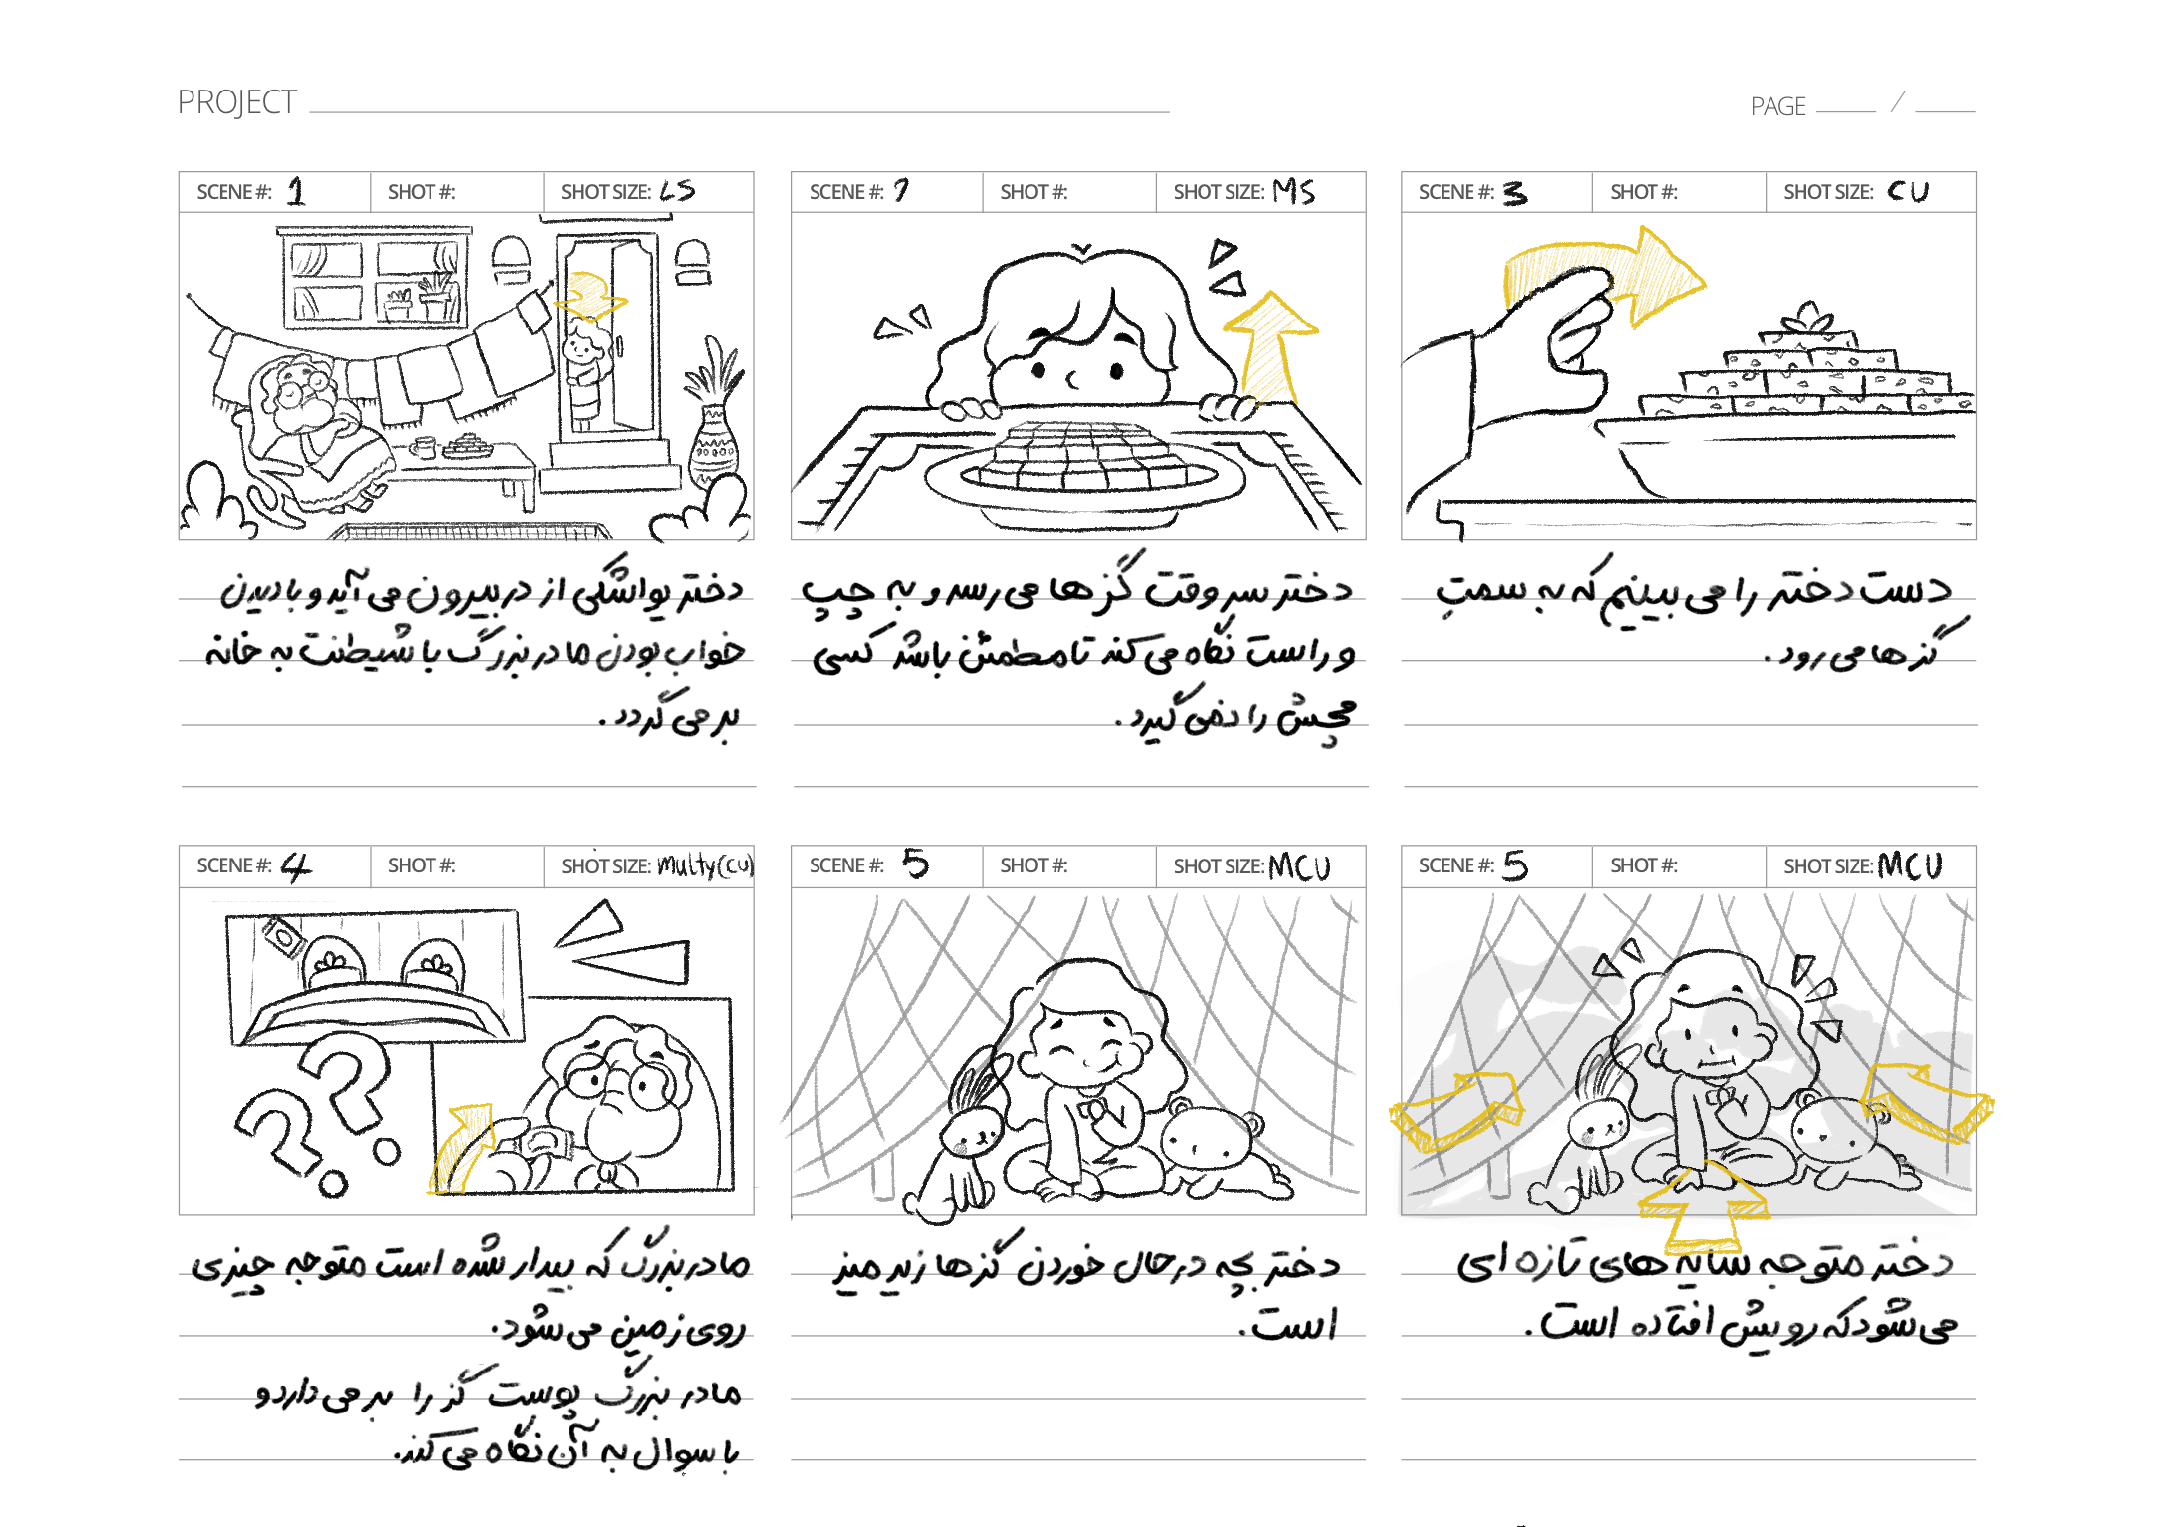 PROJECT
PAGE /
SCENE #: 1 SHOT #: SHOT SIZE: LS
دختر یواشکی از در بیرون می آید و با دیدن
خواب بودن مادربزرگ با شیطنت به خانه
بر می گردد.
SCENE #: 2 SHOT #: SHOT SIZE: MS
دختر سر وقت گزها می رسد و به چپ
و راست نگاه می کند تا مطمئن باشد کسی
مچش را نمی گیرد.
SCENE #: 3 SHOT #: SHOT SIZE: CU
دست دختر را می بینیم که به سمتِ
گزها می رود.
SCENE #: 4 SHOT #: SHOT SIZE: multy(cu)
مادربزرگ که بیدار شده است متوجه چیزی
روی زمین می شود.
مادر بزرگ پوست گز را بر می دارد و
با سوال به آن نگاه می کند.
SCENE #: 5 SHOT #: SHOT SIZE: MCU
دختر بچه در حال خوردن گزها زیر میز
است.
SCENE #: 5 SHOT #: SHOT SIZE: MCU
دختر متوجه سایه های تازه ای
می شود که رویش افتاده است.